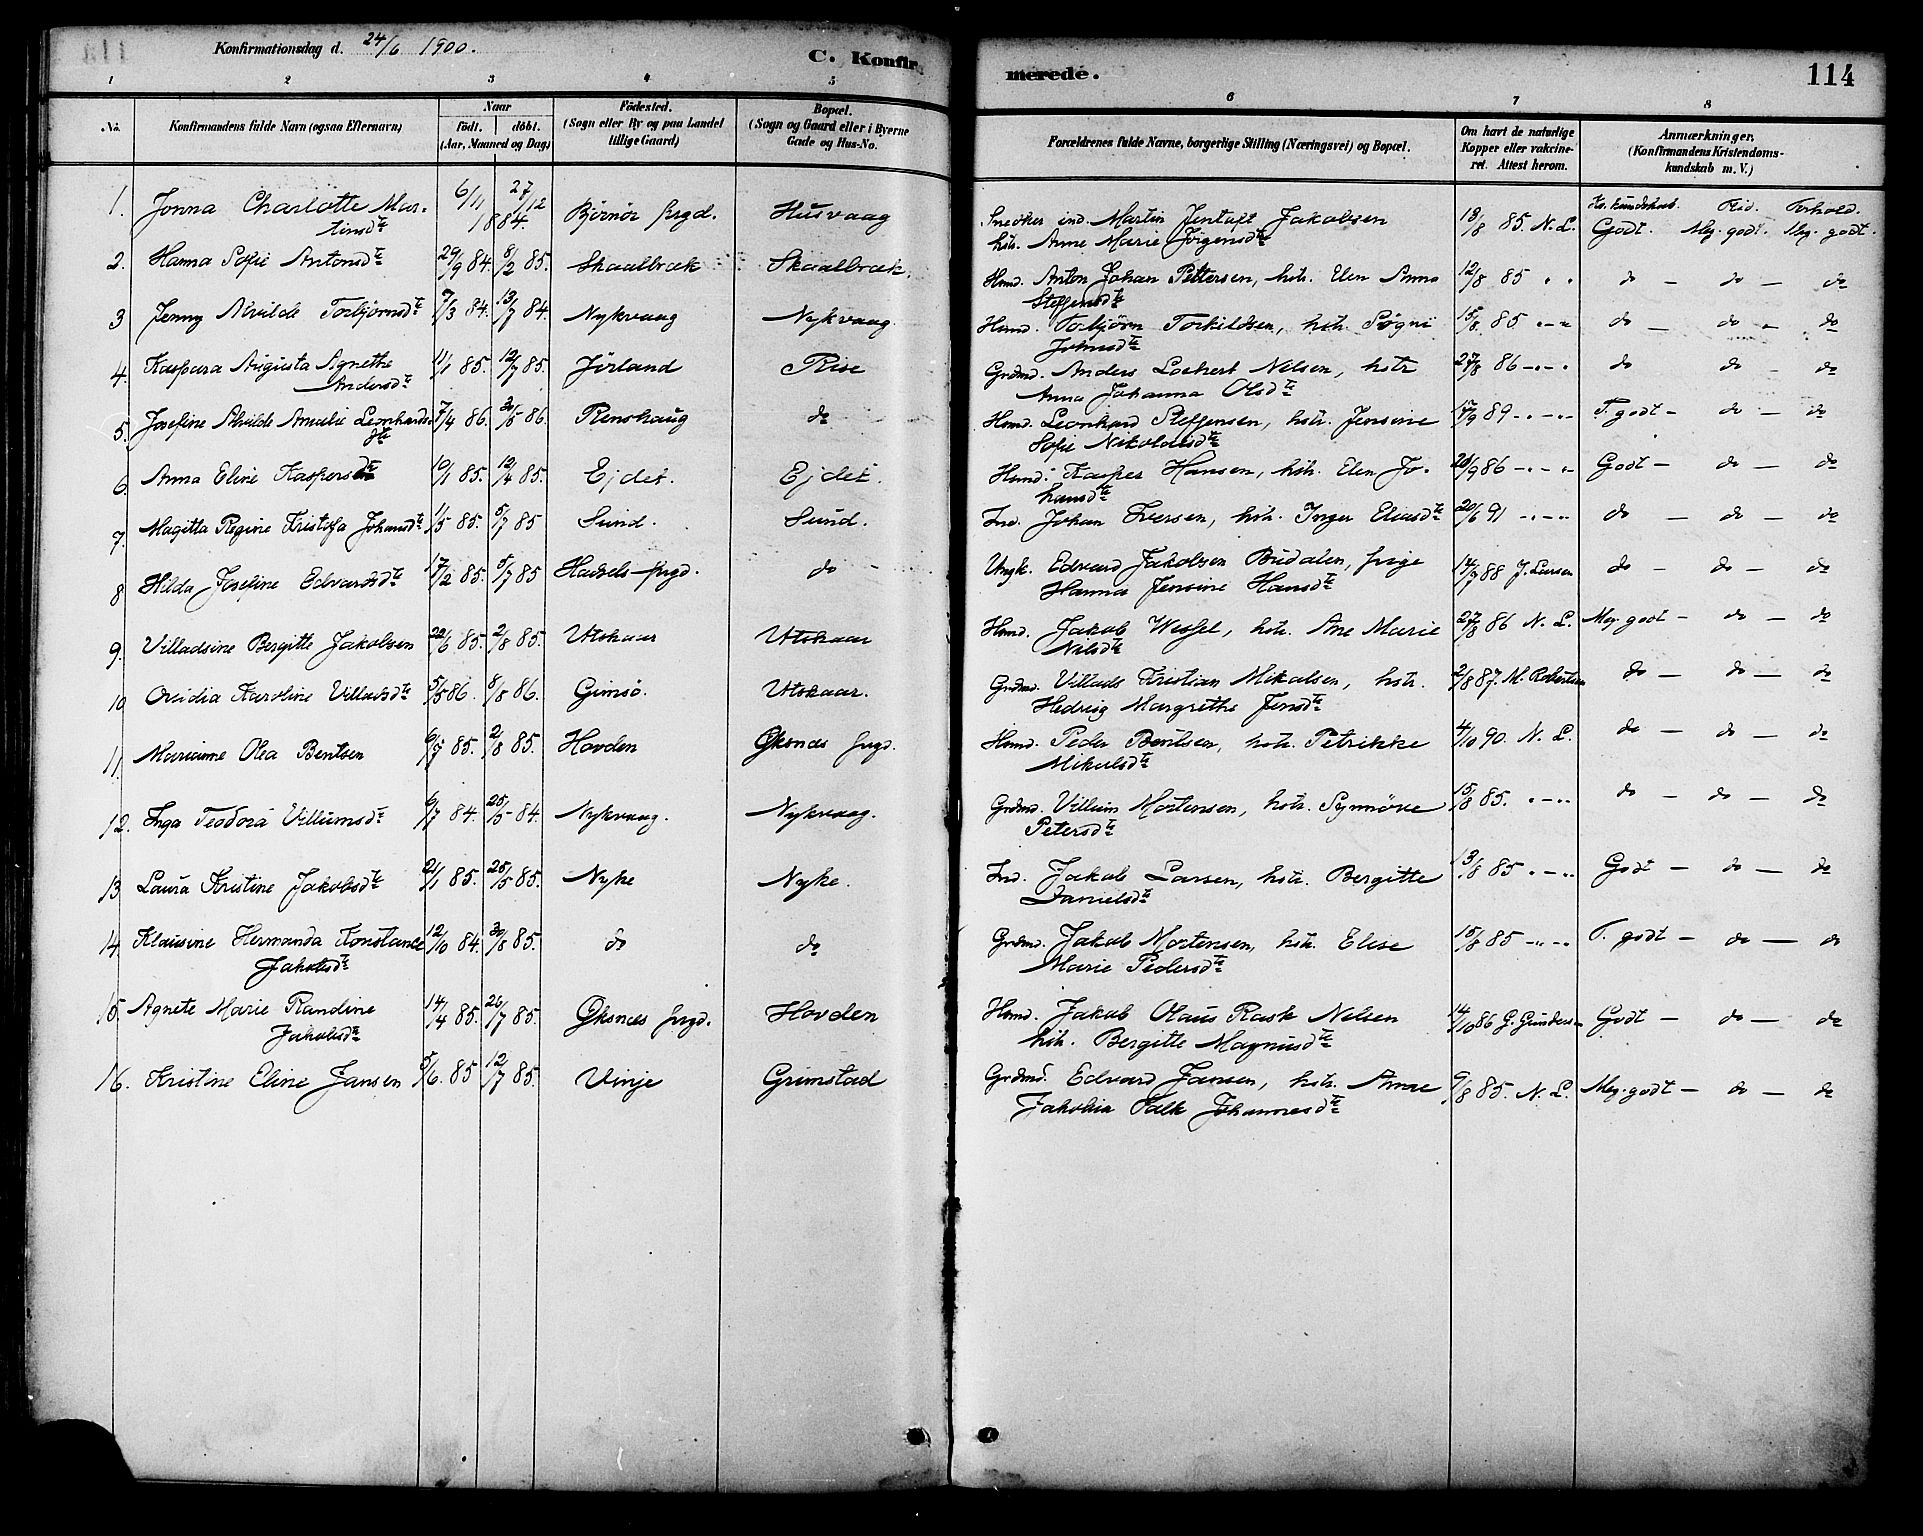 Konfirmationsdag d. 24/6 1900.
C. Konfirmerede.
114
1 2 3 4 5 6 7 8
No.
Konfirmandens fulde Navn (ogsaa Efternavn)
Naar
födt. döbt.
(Aar, Maaned og Dag)
Födested.
(Sogn eller By og paa Landet
tillige Gaard)
Bopæl.
(Sogn og Gaard eller i Byerne
Gade og Hus-No.
Forældrenes fulde Navne, borgerlige Stilling (Næringsvei) og Bopæl.
Om havt de naturlige
Kopper eller vakcine-
ret. Attest herom.
Anmærkninger,
(Konfirmandens Kristendoms-
kundskab m. V.)
Kr. kundskab. Flid. Forhold.
1. Jonna Charlotte Mar- 6/11 27/12 Björnör prgd. Husvaag Snedker ind. Martin Jentoft Jakobsen 18/8 85. N. L. Godt. Meg. godt. Meg. godt.
tinsdtr 1884. hstr. Anne Marie Jörgensdtr
2. Hanna Sofie Antonsdtr 29/9 84. 8/2 85. Skaalbræk Skaalbræk. Hmd. Anton Johan Pettersen, hstr. Elen Anna 12/8 85 " " do - do - do
Steffensdtr
3 Jenny Alvilde Torbjörnsdtr 7/3 84. 13/7 84. Nykvaag Nykvaag. Hmd. Torbjörn Torkildsen, hstr. Signi 15/8. 85 " - " do - do - do
Johnsdtr
4. Kaspara Augusta Agnethe 11/1 85. 12/7 85. Jörland Rise Grdmd. Anders Lockert Nilsen, hstr 27/8 86 - " - " do do - do
Andersdtr Anna Johanna Olsdtr
5. Josefine Alvilde Amalie Leonhards- 7/4 86. 30/5 86. Renshaug do Hmd. Leonhard Steffensen, hstr. Jensine 17/9 89 - " - " T. godt - do - do
dtr Sofie Nikolaisdtr
6. Anna Eline Kaspersdtr 10/1 85. 12/4 85. Ejdet. Ejdet. Hmd. Kasper Hansen, hstr. Elen Jo- 20/9 86 - " - " Godt - do - do
hansdtr
7. Magitta Regine Kristofa Johansdtr 11/5 85. 5/7 85 Sund. Sund. Ind. Johan Iversen, hstr. Inger Eliasdtr 20/6 91 - " - " do - do - do
8 Hilda Josefine Edvardsdtr 17/2 85. 5/7 85 Hadsels prgd. do Ungk. Edvard Jakobsen Budalen, pige 14/9 88 J. Larsen do - do - do
Hanna Jensine Hansdtr
9. Villadsine Bergitte Jakobsen 22/6 85. 2/8 85. Utskaar Utskaar Hmd. Jakob Wessel, hstr. Ane Marie 27/8 86 N. L. Meg. godt - do - do
Nilsdtr
10 Ovidia Karoline Villadsdtr 5/5 86. 8/8 86. Gimsö. Utskaar. Grdmd. Villads Kristian Mikalsen, hstr. 2/8 87. M. Robertsen do - do - do
Hedvig Margrethe Jensdtr
11. Marianne Olea Bentsen 6/7 85. 2/8 85. Hovden Öksnes prgd. Hmd. Peder Bentsen, hstr. Petrikke 4/10 90. N. L. do - do - do
Mikalsdtr
12. Inga Teodora Villumsdtr 6/7 84. 25/5 - 84. Nykvaag. Nykvaag. Grdmd. Villum Mortensen, hstr. Synnöve 15/8 85. " - " do - do - do
Petersdtr
13 Laura Kristine Jakobsdtr 21/1 85. 25/5 85. Nyke Nyke. Ind. Jakob Larsen, hstr. Bergitte 13/8 85 " - " Godt - do - do
Danielsdtr
14. Klausine Hermanda Konstance 12/10 84. 30/8 85. do do Grdmd. Jakob Mortensen, hstr. Elise 15/8 85 - " - " T. godt - do - do
Jakobsdtr Marie Pedersdtr
15. Agnete Marie Randine 14/4 85. 26/7 85. Öksnes prgd. Hovden Hmd. Jakob Olaus Rask Nilsen 14/10 86 G. Gundersen Godt - do - do
Jakobsdtr hstr. Bergitte Magnusdtr
16. Kristine Eline Jansen 5/6. 85 12/7 85. Vinje Grimstad Grdmd. Edvard Jansen, hstr. Anne 9/8 85. N. L. Meg. godt - do - do
Jakobia Falk Johannesdtr